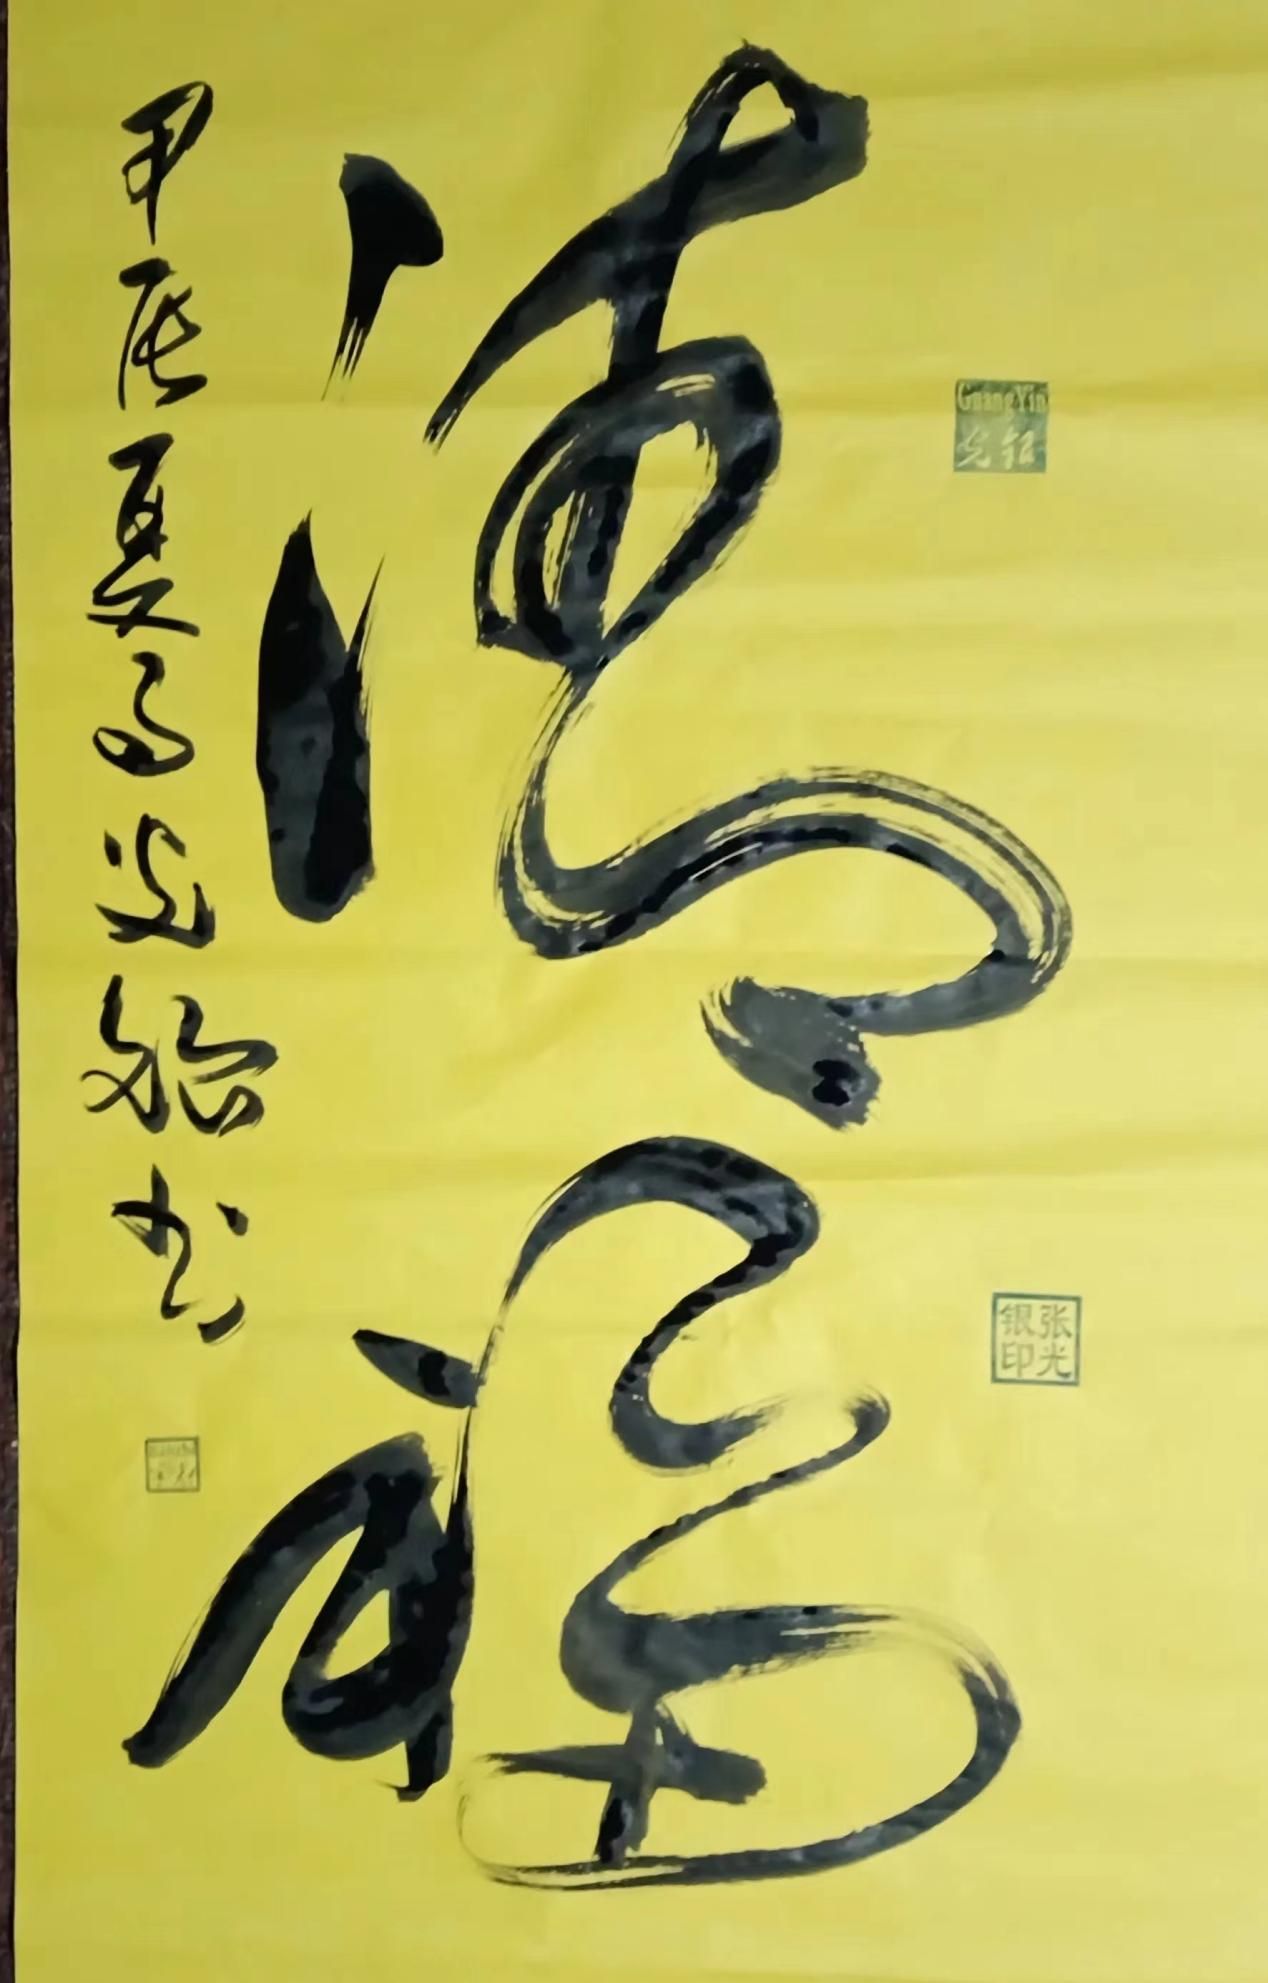 德福
甲辰夏月光银书
GuangYin
光银
张光
银印